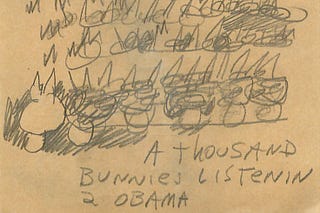 A THOUSAND
BUNNIES LISTENIN
2 OBAMA